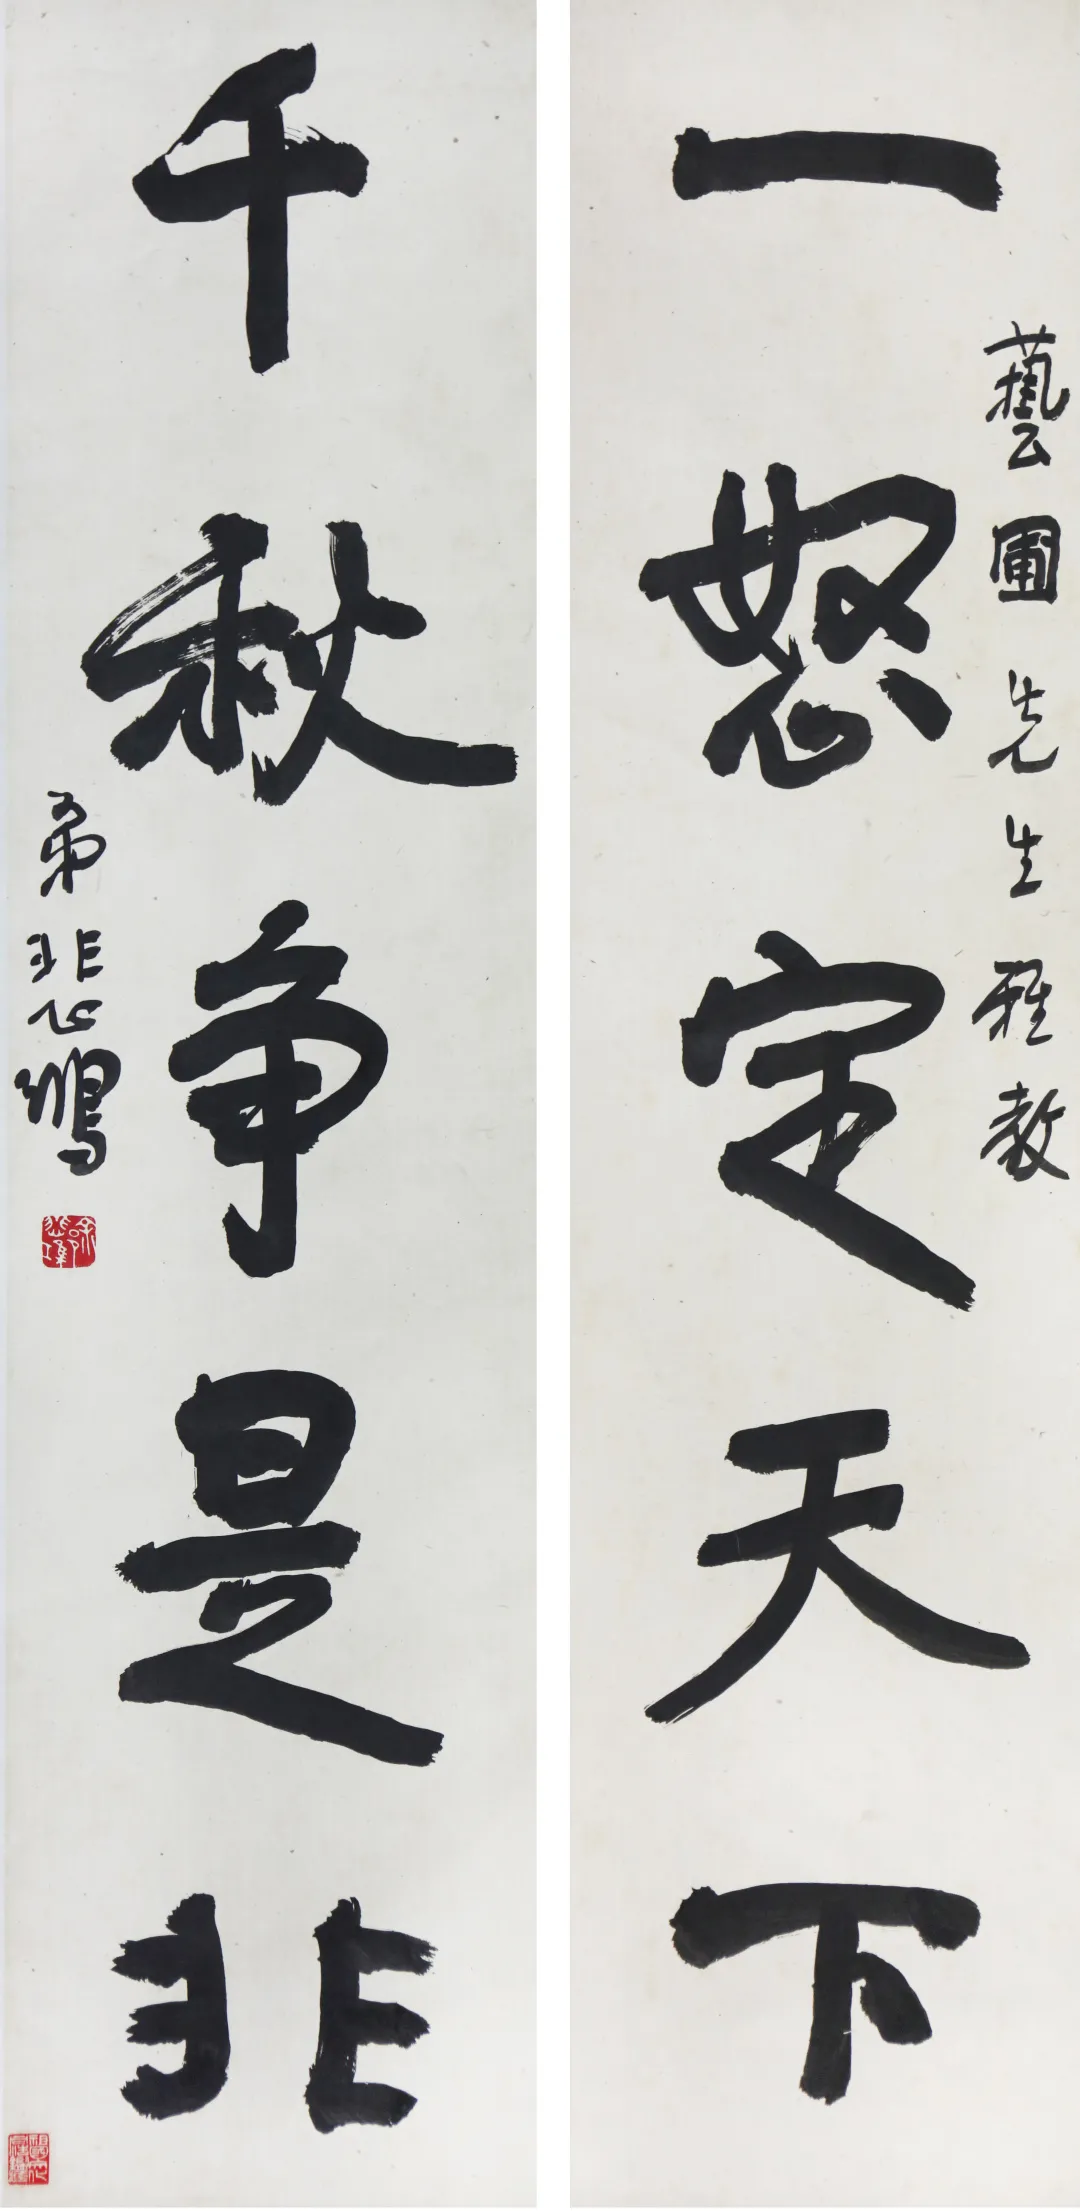 藝圃先生雅教
一怒定天下
千秋争是非
弟悲鴻